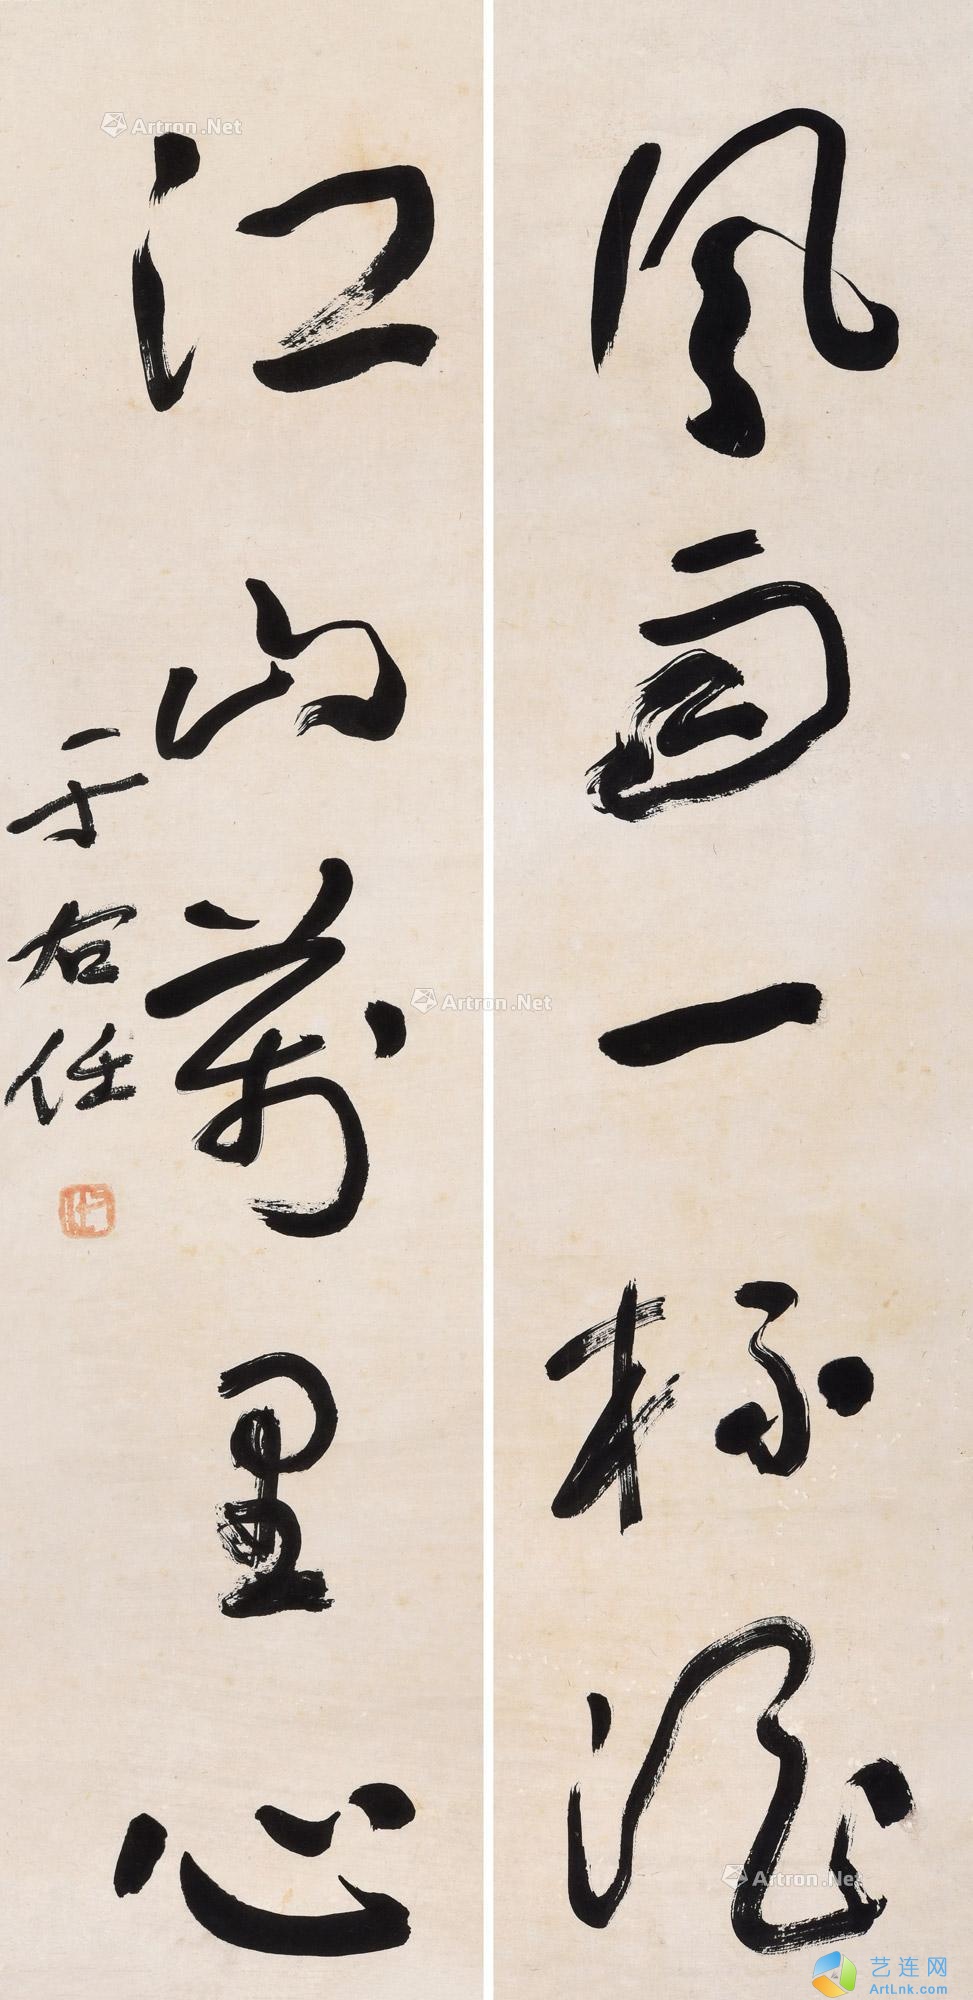 風雨一杯酒
江山萬里心
于右任
Artron.Net
Artron.Net
Artron.Net
艺连网
ArtLnk.com